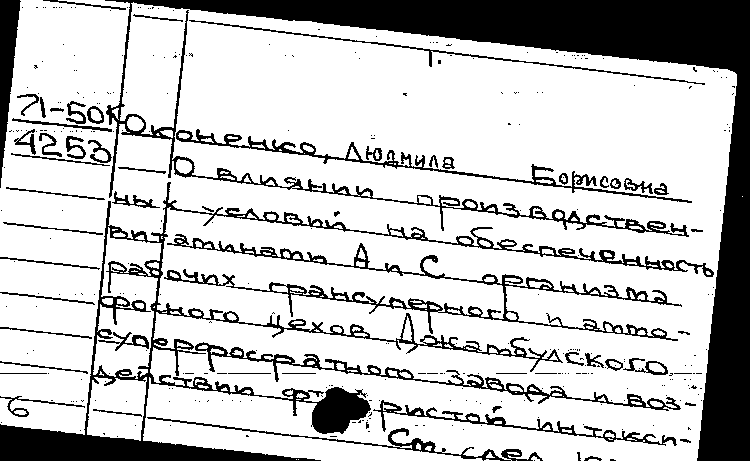 1.
71-50К Оконенко, Людмила Борисовна
4253
О влиянии производствен-
ных условий на обеспеченность
витаминами А и С организма
рабочих грансуперного и аммо-
фосного цехов Джамбулского
суперфосфатного завода и воз-
действии фтористой интокси-
6
См. след